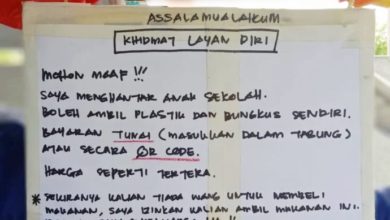 ASSALAMUALAIKUM
KHIDMAT LAYAN DIRI
MOHON MAAF !!!
SAYA MENGHANTAR ANAK SEKOLAH.
BOLEH AMBIL PLASTIK DAN BUNGKUS SENDIRI.
BAYARAN TUNAI (MASUKKAN DALAM TABUNG)
ATAU SECARA QR CODE.
HARGA SEPERTI TERTERA.
* SEKIRANYA KALIAN TIADA WANG UNTUK MEMBELI
MAKANAN, SAYA IZINKAN KALIAN AMBIL MAKANAN INI.